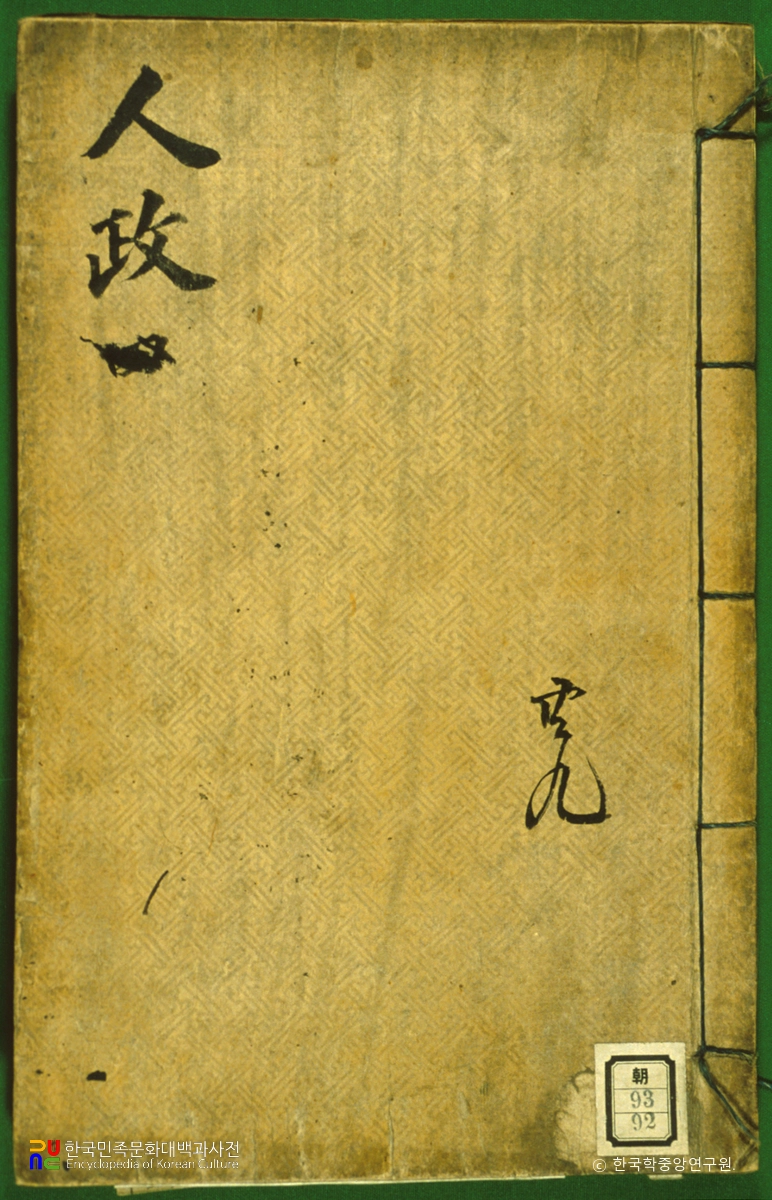 人政
共九
朝
93
92
한국민족문화대백과사전
Encyclopedia of Korean Culture
© 한국학중앙연구원